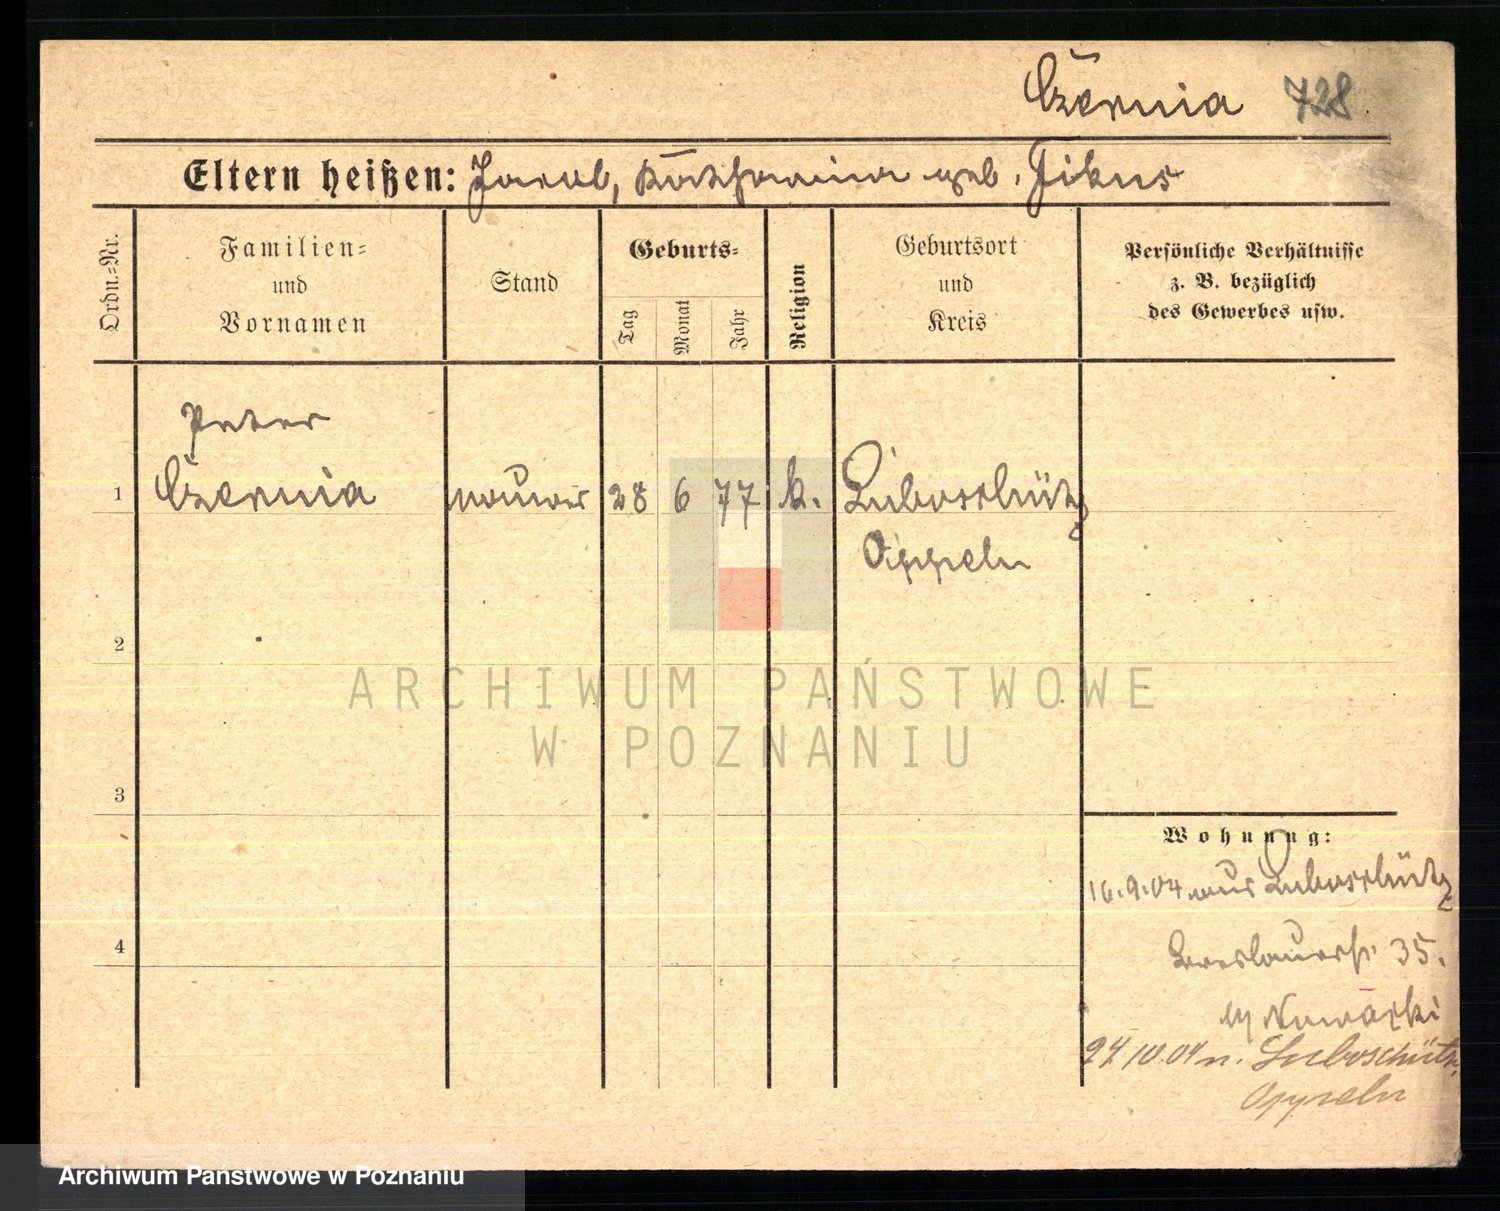 Czernia 728
Eltern heißen: Jacob, Katharina geb. Fikus
Ordn.=Nr.
Familien=
und
Vornamen
Stand
Geburts=
Tag
Monat
Jahr
Religion
Geburtsort
und
Kreis
Persönliche Verhältnisse
z. B. bezüglich
des Gewerbes usw.
Peter
1 Czernia Maurer 28 6 77 k. Luboschütz
Oppeln
2
3
4
Wohnung:
16.9.04 aus Luboschütz
Breslauerstr. 35.
b/ Nowacki
24/10.04 n. Luboschütz,
Oppeln
ARCHIWUM PAŃSTWOWE
W POZNANIU
Archiwum Państwowe w Poznaniu